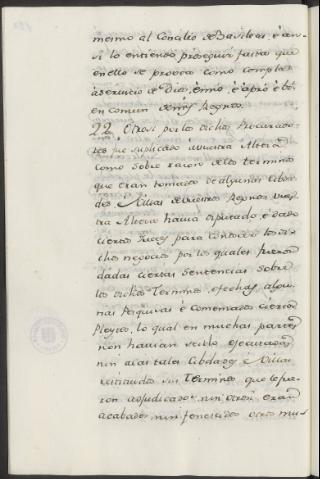 mesmo al Concilio de Basilea, é an-
si lo entiendo proseguir fasta que
en ello se provea como cumple
á servicio de Dios, é mio, é á pro é bi
en comun de mis Regnos.
22. Otrosi por los dichos Procurado-
res fue suplicado á vuestra Alteza
como sobre razon de los terminos
que eran tomados de algunas Cibda-
des é Villas de vuestros Regnos vues-
tra Alteza havia diputado, é dado
ciertos Jueces para conocer los di-
chos negocios por los quales fueron
dadas ciertas Sentencias sobre
los dichos Terminos, é fechas algu-
nas Pesquisas é comenzados ciertos
Pleytos, lo qual en muchas partes
non havian seido executadas,
nin á las tales Cibdades é Villas
restituidos sus Terminos que le fue-
ron adjudicados, nin otros eran
acabados, nin fenescidos otros mu-